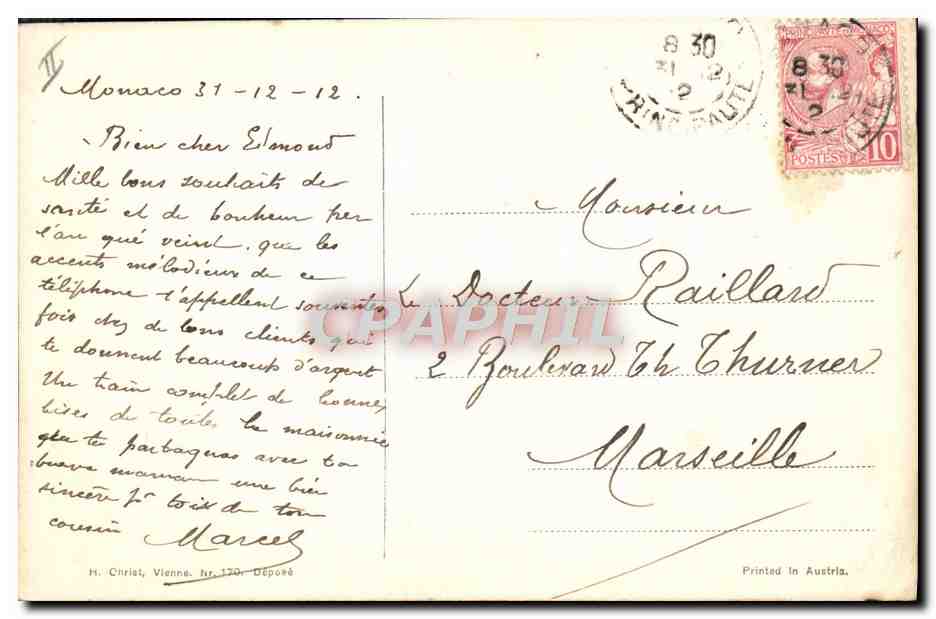 II
Monaco 31-12-12.
Bien cher Edmond
Mille bons souhaits de
santé et de bonheur per
l'an qué veint, que les
accents mélodieux de ce
téléphone t'appellent souventes
fois chez de bons clients qui
te donnent beaucoup d'argent
Un train complet de bonnes
bises de toute la maisonnée
que tu partageras avec ta
brave maman une bien
sincère pr toi de ton
cousin Marcel
H. Christ, Vienne. Nr. 170. Déposé
8 30
31 12
RINE HAUTE
PRINCIPAUTE DE MONACO
8 30
31 12
POSTES 10
Monsieur
Le Docteur Raillard
2 Boulevard Th Thurner
Marseille
Printed in Austria.
CPAPHIL